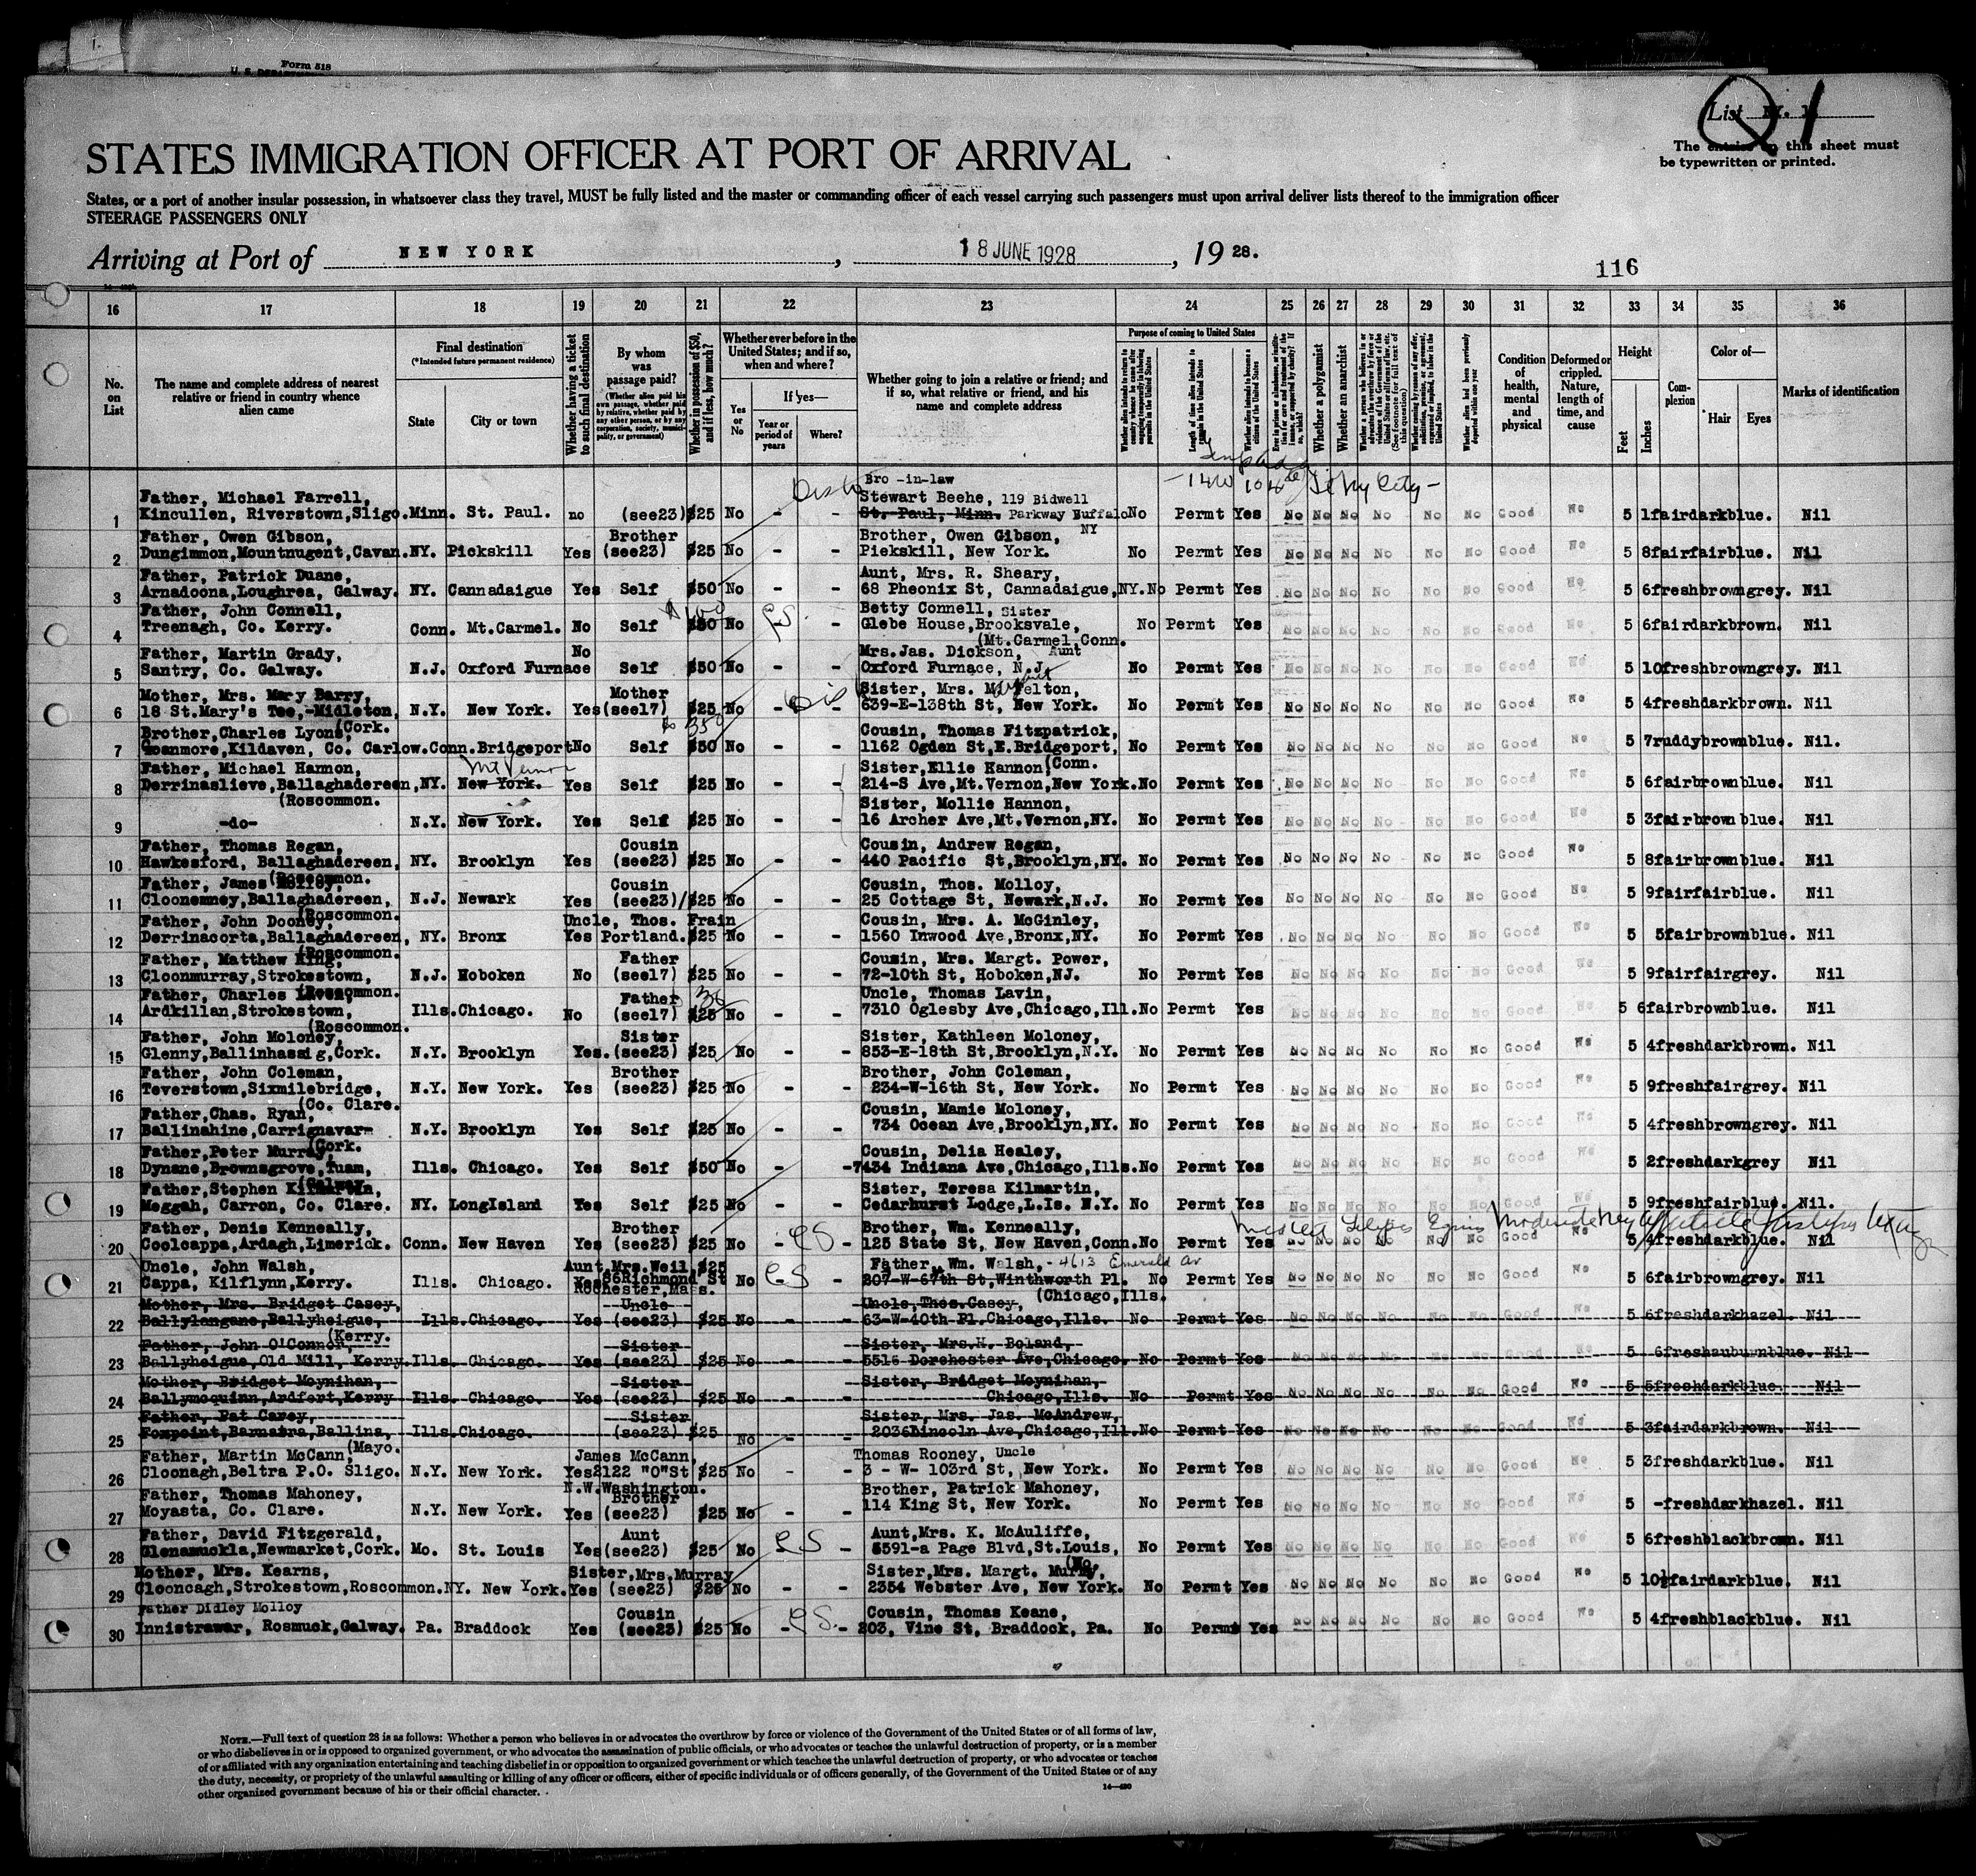 Form 518
List
The entries on this sheet must
be typewritten or printed.
STATES IMMIGRATION OFFICER AT PORT OF ARRIVAL
States, or a port of another insular possession, in whatsoever class they travel, MUST be fully listed and the master or commanding officer of each vessel carrying such passengers must upon arrival deliver lists thereof to the immigration officer
STEERAGE PASSENGERS ONLY
Arriving at Port of NEW YORK, 18 JUNE 1928, 19 28.
116
16 17 18 19 20 21 22 23 24 25 26 27 28 29 30 31 32 33 34 35 36
No. on List
The name and complete address of nearest relative or friend in country whence alien came
Final destination
(*Intended future permanent residence)
State
City or town
Whether having a ticket to such final destination
By whom was passage paid?
(Whether alien paid his own passage, whether paid by relative, whether paid by any other person, or by any corporation, society, municipality, or government)
Whether in possession of $50, and if less, how much?
Whether ever before in the United States; and if so, when and where?
Yes or No
If yes—
Year or period of years
Where?
Whether going to join a relative or friend; and if so, what relative or friend, and his name and complete address
Purpose of coming to United States
Length of time alien intends to remain in the United States
Whether alien intends to become a citizen of the United States
Whether a polygamist
Whether an anarchist
Whether alien had been previously deported within one year
Condition of health, mental and physical
Deformed or crippled. Nature, length of time, and cause
Height
Feet
Inches
Complexion
Color of—
Hair
Eyes
Marks of identification
Bro -in-law
Father, Michael Farrell, Stewart Beehe, 119 Bidwell
1 Kincullen, Riverstown,Sligo. Minn. St. Paul. no (see23) $25 No - - St. Paul, Minn. Parkway Buffalo No Permt Yes No No No No No No Good No 5 1 fair dark blue. Nil
NY
Father, Owen Gibson, Brother Brother, Owen Gibson,
2 Dungimmon,Mountnugent,Cavan. NY. Pickskill Yes (see23) $25 No - - Piekskill, New York. No Permt Yes No No No No No No Good No 5 8 fair fair blue. Nil
Father, Patrick Duane, Aunt, Mrs. R. Sheary,
3 Arnadoona,Loughrea, Galway. NY. Cannadaigue Yes Self $50 No - - 68 Pheonix St, Cannadaigue,NY. No Permt Yes No No No No No No Good No 5 6 fresh brown grey. Nil
Father, John Connell, $100 Betty Connell, Sister
4 Treenagh, Co. Kerry. Conn. Mt.Carmel. No Self $50 No - Glebe House,Brooksvale, No Permt Yes No No No No No No Good No 5 6 fair dark brown. Nil
(Mt.Carmel,Conn.
Father, Martin Grady, No Mrs.Jas. Dickson, Aunt
5 Santry, Co. Galway. N.J. Oxford Furnace Self $50 No - - Oxford Furnace, N.J. No Permt Yes No No No No No No Good No 5 10 fresh brown grey. Nil
Mother, Mrs. Mary Barry, Mother Sister, Mrs. Felton,
6 18 St.Mary's Tce,-Midleton, N.Y. New York. Yes (see17) $25 No - - 639-E-138th St, New York. No Permt Yes No No No No No No Good No 5 4 fresh dark brown. Nil
(Cork.
Brother,Charles Lyons, 350 Cousin, Thomas Fitzpatrick,
7 Kildaven, Co. Carlow. Conn. Bridgeport No Self $50 No - - 1162 Ogden St,E.Bridgeport, No Permt Yes No No No No No No Good No 5 7 ruddy brown blue. Nil.
(Conn.
Father, Michael Hannon, Mt Vernon Sister,Ellie Hannon,
8 Derrinaslieve,Ballaghadereen, NY. New York. Yes Self $25 No - - 214-S Ave,Mt.Vernon,New York. No Permt Yes No No No No No No Good No 5 6 fair brown blue. Nil
(Roscommon. Sister, Mollie Hannon,
9 -do- N.Y. New York. Yes Self $25 No - - 16 Archer Ave,Mt.Vernon,NY. No Permt Yes No No No No No No Good No 5 3 fair brown blue. Nil
Father, Thomas Regan, Cousin Cousin, Andrew Regan,
10 Hawkesford, Ballaghadereen, NY. Brooklyn Yes (see23) $25 No - - 440 Pacific St,Brooklyn,NY. No Permt Yes No No No No No No Good No 5 8 fair brown blue. Nil
(Roscommon.
Father, James Molloy, Cousin Cousin, Thos. Molloy,
11 Cloonemney,Ballaghadereen, N.J. Newark Yes (see23) $25 No - - 25 Cottage St, Newark,N.J. No Permt Yes No No No No No No Good No 5 9 fair fair blue. Nil
(Roscommon.
Father, John Dooney, Uncle, Thos. Frain Cousin, Mrs. A. McGinley,
12 Derrinacorta,Ballaghadereen, NY. Bronx Yes Portland. $25 No - - 1560 Inwood Ave,Bronx,NY. No Permt Yes No No No No No No Good No 5 5 fair brown blue. Nil
(Roscommon.
Father, Matthew King, Father Cousin, Mrs. Margt. Power,
13 Cloonmurray,Strokestown, N.J. Hoboken No (see17) $25 No - - 72-10th St, Hoboken,NJ. No Permt Yes No No No No No No Good No 5 9 fair fair grey. Nil
(Roscommon.
Father, Charles Father Uncle, Thomas Lavin,
14 Ardkillan,Strokestown, Ills. Chicago. No (see17) $25 No - - 7310 Oglesby Ave,Chicago,Ill. No Permt Yes No No No No No No Good No 5 6 fair brown blue. Nil
(Roscommon.
Father, John Moloney, Sister Sister, Kathleen Moloney,
15 Glenny,Ballinhassig,Cork. N.Y. Brooklyn Yes. (see23) $25 No - - 853-E-18th St,Brooklyn,N.Y. No Permt Yes No No No No No No Good No 5 4 fresh dark brown. Nil
Father, John Coleman, Brother Brother, John Coleman,
16 Teverstown,Sixmilebridge, N.Y. New York. Yes (see23) $25 No - - 234-W-16th St, New York. No Permt Yes No No No No No No Good No 5 9 fresh fair grey. Nil
(Co. Clare.
Father,Chas. Ryan, Cousin, Mamie Moloney,
17 Ballinahine,Carrignavar- N.Y. Brooklyn Yes Self $25 No - - 734 Ocean Ave,Brooklyn,NY. No Permt Yes No No No No No No Good No 5 4 fresh brown grey. Nil
(Cork.
Father,Peter Murray, Cousin, Delia Healey,
18 Dynane,Brownsgrove,Tuam, Ills. Chicago. Yes Self $50 No - - 7434 Indiana Ave,Chicago,Ills. No Permt Yes No No No No No No Good No 5 2 fresh dark grey Nil
(Galway.
Father,Stephen Kilmartin, Sister, Teresa Kilmartin,
19 Meggah, Carron, Co. Clare. NY. LongIsland Yes Self $25 No - - Cedarhurst Lodge,L.Is. N.Y. No Permt Yes No No No No No No Good No 5 9 fresh fair blue. Nil.
Father, Denis Kenneally, Brother Brother, Wm. Kenneally,
20 Coolcappa,Ardagh,Limerick. Conn. New Haven Yes (see23) $25 No - - 125 State St, New Haven,Conn. No Permt Yes No No No No No No Good No 5 4 fresh dark blue. Nil
Uncle, John Walsh, Aunt,Mrs.Weil, $25 Father, Wm. Walsh, - 4613 Emerald Av
21 Cappa, Kilflynn,Kerry. Ills. Chicago. Yes 86 Richmond St No - 207-W-67th St,Winthworth Pl. No Permt Yes No No No No No No Good No 5 6 fair brown grey. Nil
Rochester,Mass. (Chicago,Ills.
Mother, Mrs. Bridget Casey, Uncle Uncle,Thos.Casey,
22 Ballylongane,Ballyheigue, Ills. Chicago. Yes (see23) $25 No - - 63-W-40th Pl.Chicago,Ills. No Permt Yes No No No No No No Good No 5 6 fresh dark hazel. Nil
(Kerry.
Father, John O'Connor, Sister Sister, Mrs.H. Boland,
23 Ballyheigue,Old Mill, Kerry. Ills. Chicago. Yes (see23) $25 No - - 5516 Dorchester Ave,Chicago. No Permt Yes No No No No No No Good No 5 6 fresh auburn blue. Nil
Mother, Bridget Moynihan, Sister Sister, Bridget Moynihan,
24 Ballymoquinn,Ardfert,Kerry Ills. Chicago. Yes (see23) $25 No - - Chicago,Ills. No Permt Yes No No No No No No Good No 5 5 fresh dark blue. Nil
Father, Pat Carey, Sister Sister, Mrs. Jas. McAndrew,
25 Foxpoint,Barnatra,Ballina, Ills. Chicago. (see23) $25 No - - 2036 Lincoln Ave,Chicago,Ill. No Permt Yes No No No No No No Good No 5 3 fair dark brown. Nil
(Mayo.
Father, Martin McCann, James McCann, Thomas Rooney, Uncle
26 Cloonagh,Beltra P.O. Sligo. N.Y. New York. Yes 2122 "O"St $25 No - - 3 - W- 103rd St, New York. No Permt Yes No No No No No No Good No 5 3 fresh dark blue. Nil
N.W.Washington.
Father, Thomas Mahoney, Brother Brother, Patrick Mahoney,
27 Moyasta, Co. Clare. N.Y. New York. Yes (see23) $25 No - - 114 King St, New York. No Permt Yes No No No No No No Good No 5 - fresh dark hazel. Nil
Father, David Fitzgerald, Aunt Aunt,Mrs. K. McAuliffe,
28 Glenamuckla,Newmarket,Cork. Mo. St. Louis Yes (see23) $25 No - - 5591-a Page Blvd,St.Louis, No Permt Yes No No No No No No Good No 5 6 fresh black brown. Nil
(Mo.
Mother, Mrs. Kearns, Sister,Mrs.Murray Sister,Mrs. Margt. Murray,
29 Clooncagh,Strokestown,Roscommon. NY. New York. Yes (see23) $25 No - - 2354 Webster Ave, New York. No Permt Yes No No No No No No Good No 5 10½ fair dark blue. Nil
Father Didley Molloy Cousin Cousin, Thomas Keane,
30 Innistrawar, Rosmuck,Galway. Pa. Braddock Yes (see23) $25 No - - 203, Vine St, Braddock, Pa. No Permt Yes No No No No No No Good No 5 4 fresh black blue. Nil
NOTE.—Full text of question 28 is as follows: Whether a person who believes in or advocates the overthrow by force or violence of the Government of the United States or of all forms of law,
or who disbelieves in or is opposed to organized government, or who advocates the assassination of public officials, or who advocates or teaches the unlawful destruction of property, or is a member
of or affiliated with any organization entertaining and teaching disbelief in or opposition to organized government or which teaches the unlawful destruction of property, or who advocates or teaches
the duty, necessity, or propriety of the unlawful assaulting or killing of any officer or officers, either of specific individuals or of officers generally, of the Government of the United States or of any
other organized government because of his or their official character.
14—490